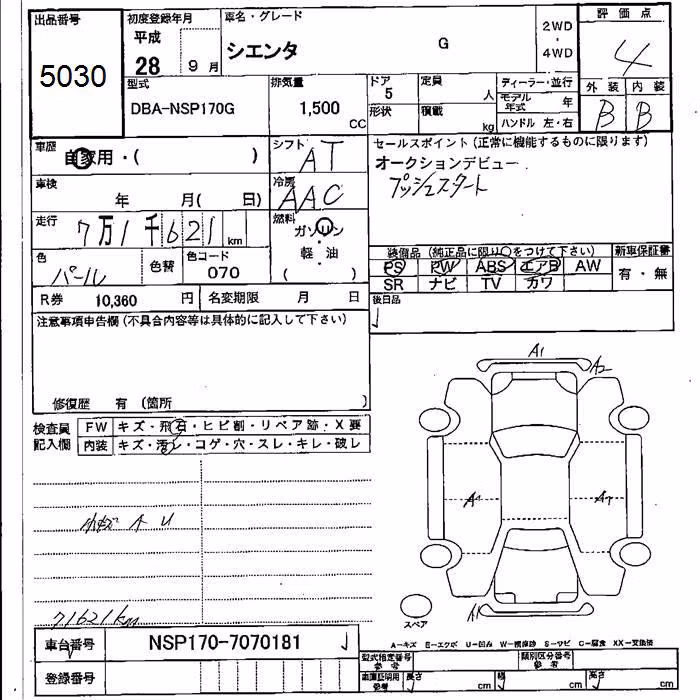 出品番号
5030
初度登録年月
平成
28 9 月
車名・グレード
シエンタ G
2WD
・
4WD
評価点
4
外装 内装
B B
型式
DBA-NSP170G
排気量
1,500 CC
ドア
5
形状
定員
人
積載
kg
ディーラー・並行
モデル年式 年
ハンドル 左・右
車歴
自家用・( )
シフト
AT
車検
年 月( 日)
冷房
AAC
走行
7万1千621 km
燃料
ガソリン
・
軽・油
( )
色
パール
色替
色コード
070
R券 10,360 円
名変期限 月 日
セールスポイント(正常に機能するものに限ります)
オークションデビュー
プッシュスタート
装備品(純正品に限り○をつけて下さい)
PS PW ABS エアB AW
SR ナビ TV カワ
新車保証書
有・無
後日品
注意事項申告欄(不具合内容等は具体的に記入して下さい)
修復歴 有 (箇所 )
検査員
記入欄
FW キズ・飛石・ヒビ割・リペア跡・X要
内装 キズ・汚レ・コゲ・穴・スレ・キレ・破レ
小キズ A U
71621km
A1
A2
A1
スペア
A1
車台番号 NSP170-7070181
登録番号
A-キズ E-エクボ U-凹み W-補修跡 S-サビ C-腐食 XX-交換済
型式指定番号
参考
類別区分番号
参考
車庫証明用
参考
長さ cm
幅 cm
高さ cm